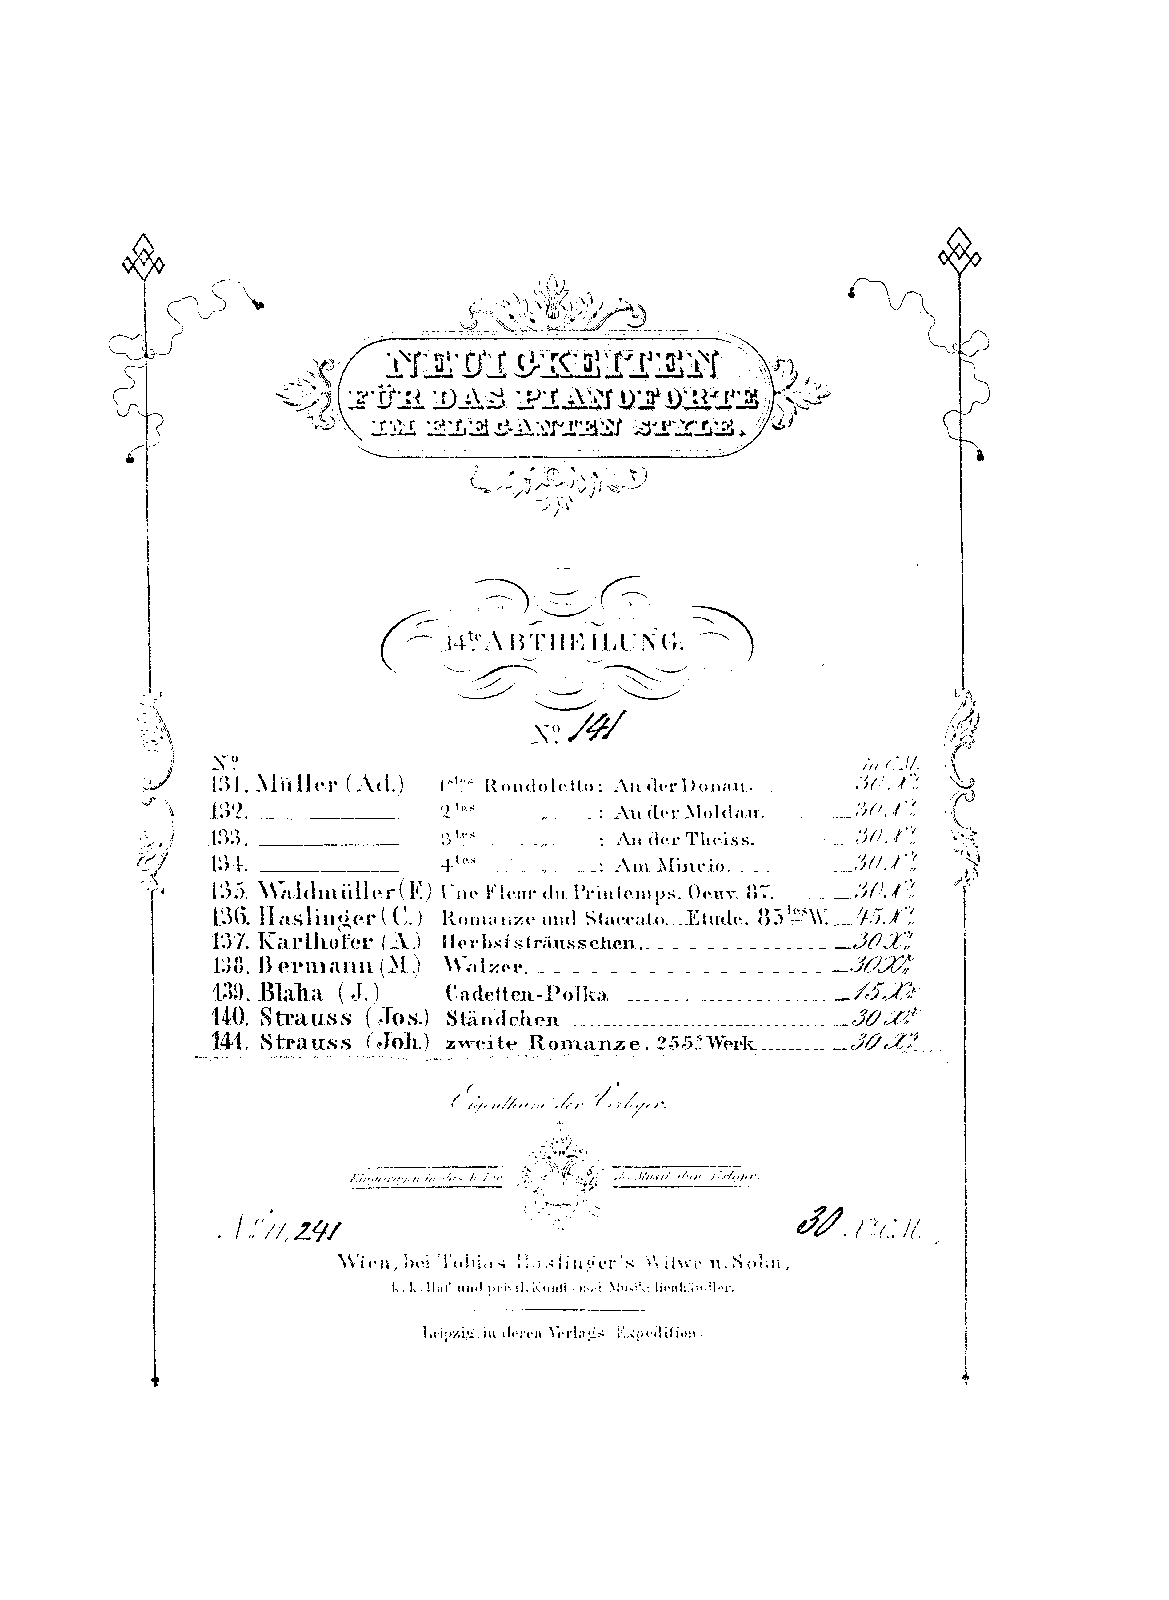 NEUIGKEITEN
FÜR DAS PIANOFORTE
IM ELEGANTEN STYLE.
14te ABTHEILUNG.
No. 141
No. in C.M.
131. Müller (Ad.) 1stes Rondoletto: An der Donau. 30 Xr.
132. 2tes „ : An der Moldau. 30 Xr.
133. 3tes „ : An der Theiss. 30 Xr.
134. 4tes „ : Am Mincio. 30 Xr.
135. Waldmüller (F.) Une Fleur du Printemps. Oeuv. 87. 30 Xr.
136. Haslinger (C.) Romanze und Staccato-Etude. 85tes W. 45 Xr.
137. Karlhofer (A.) Herbststräusschen. 30 Xr.
138. Bermann (M.) Walzer. 30 Xr.
139. Blaha (J.) Cadetten-Polka 15 Xr.
140. Strauss (Jos.) Ständchen 30 Xr.
141. Strauss (Joh.) zweite Romanze. 255s Werk 30 Xr.
Eigenthum der Verleger.
No. 11,241 30 Xr. C.M.
Wien, bei Tobias Haslinger's Witwe u. Sohn,
k. k. Hof und privil. Kunst und Musikalienhändler.
Leipzig, in deren Verlags-Expedition.